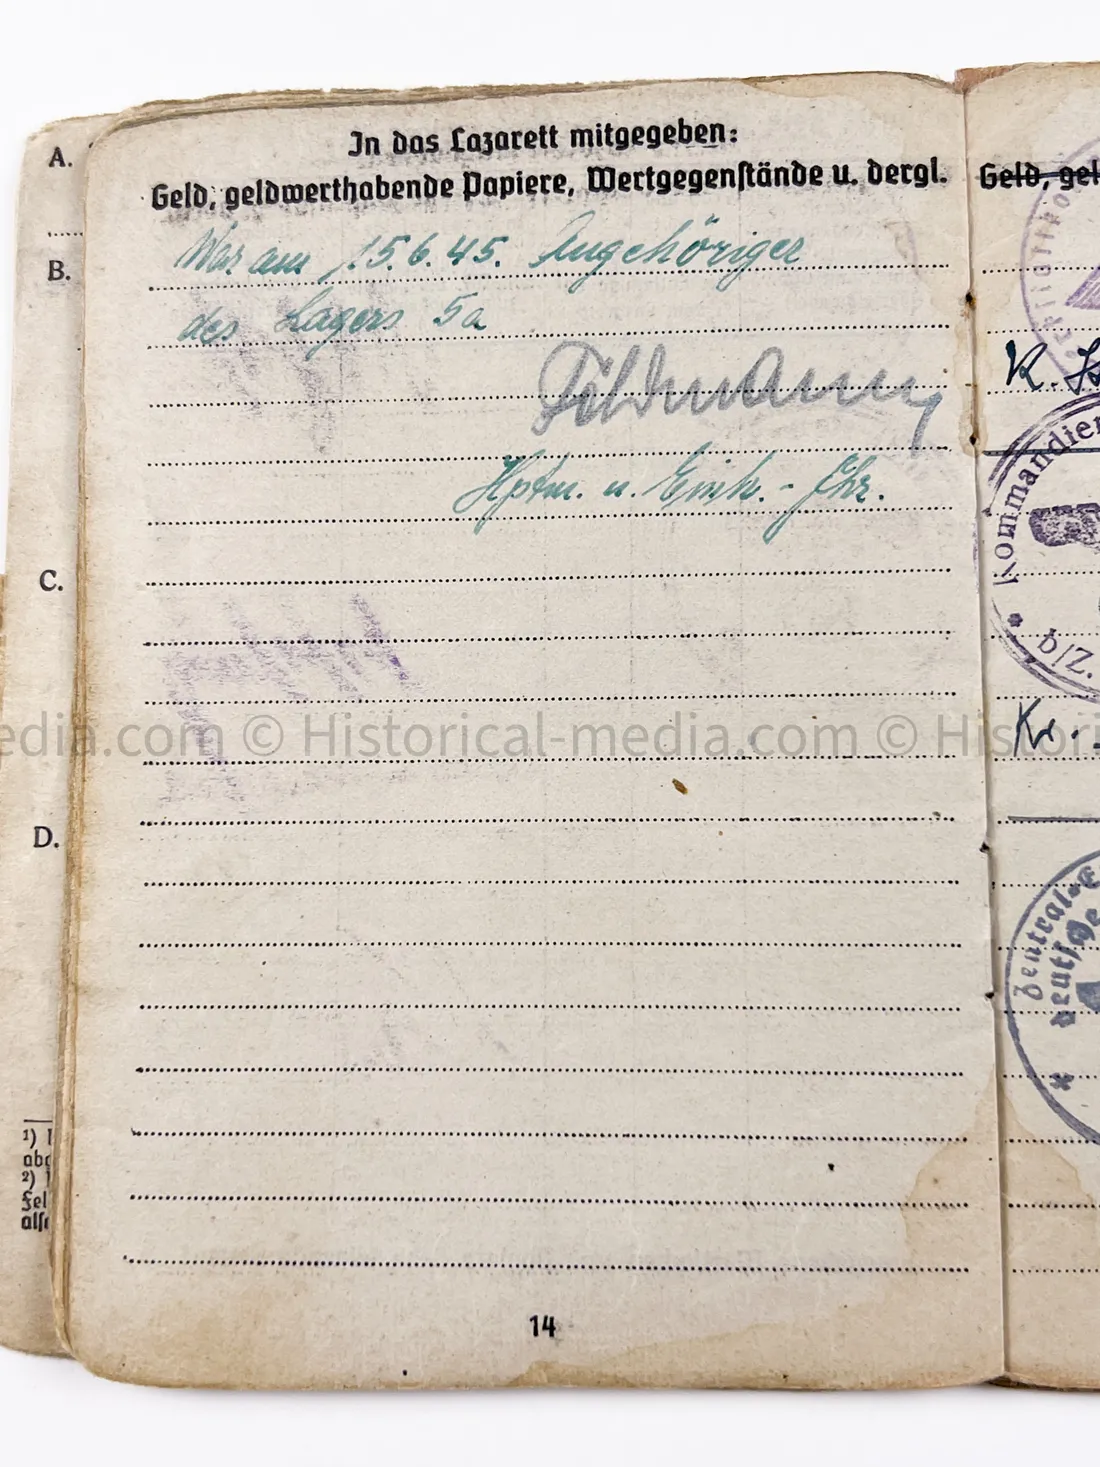 In das Lazarett mitgegeben:
Geld, geldwerthabende Papiere, Wertgegenstände u. dergl.
War am 15.6.45. Angehöriger
des Lagers 5a
Hptm. u. Einh.-Fhr.
14
A.
B.
C.
D.
1)
2)
Geld, gel
K.
Kommandier
b/Z.
Kr.
Zentral-E
deutsche
edia.com © Historical-media.com © Histori